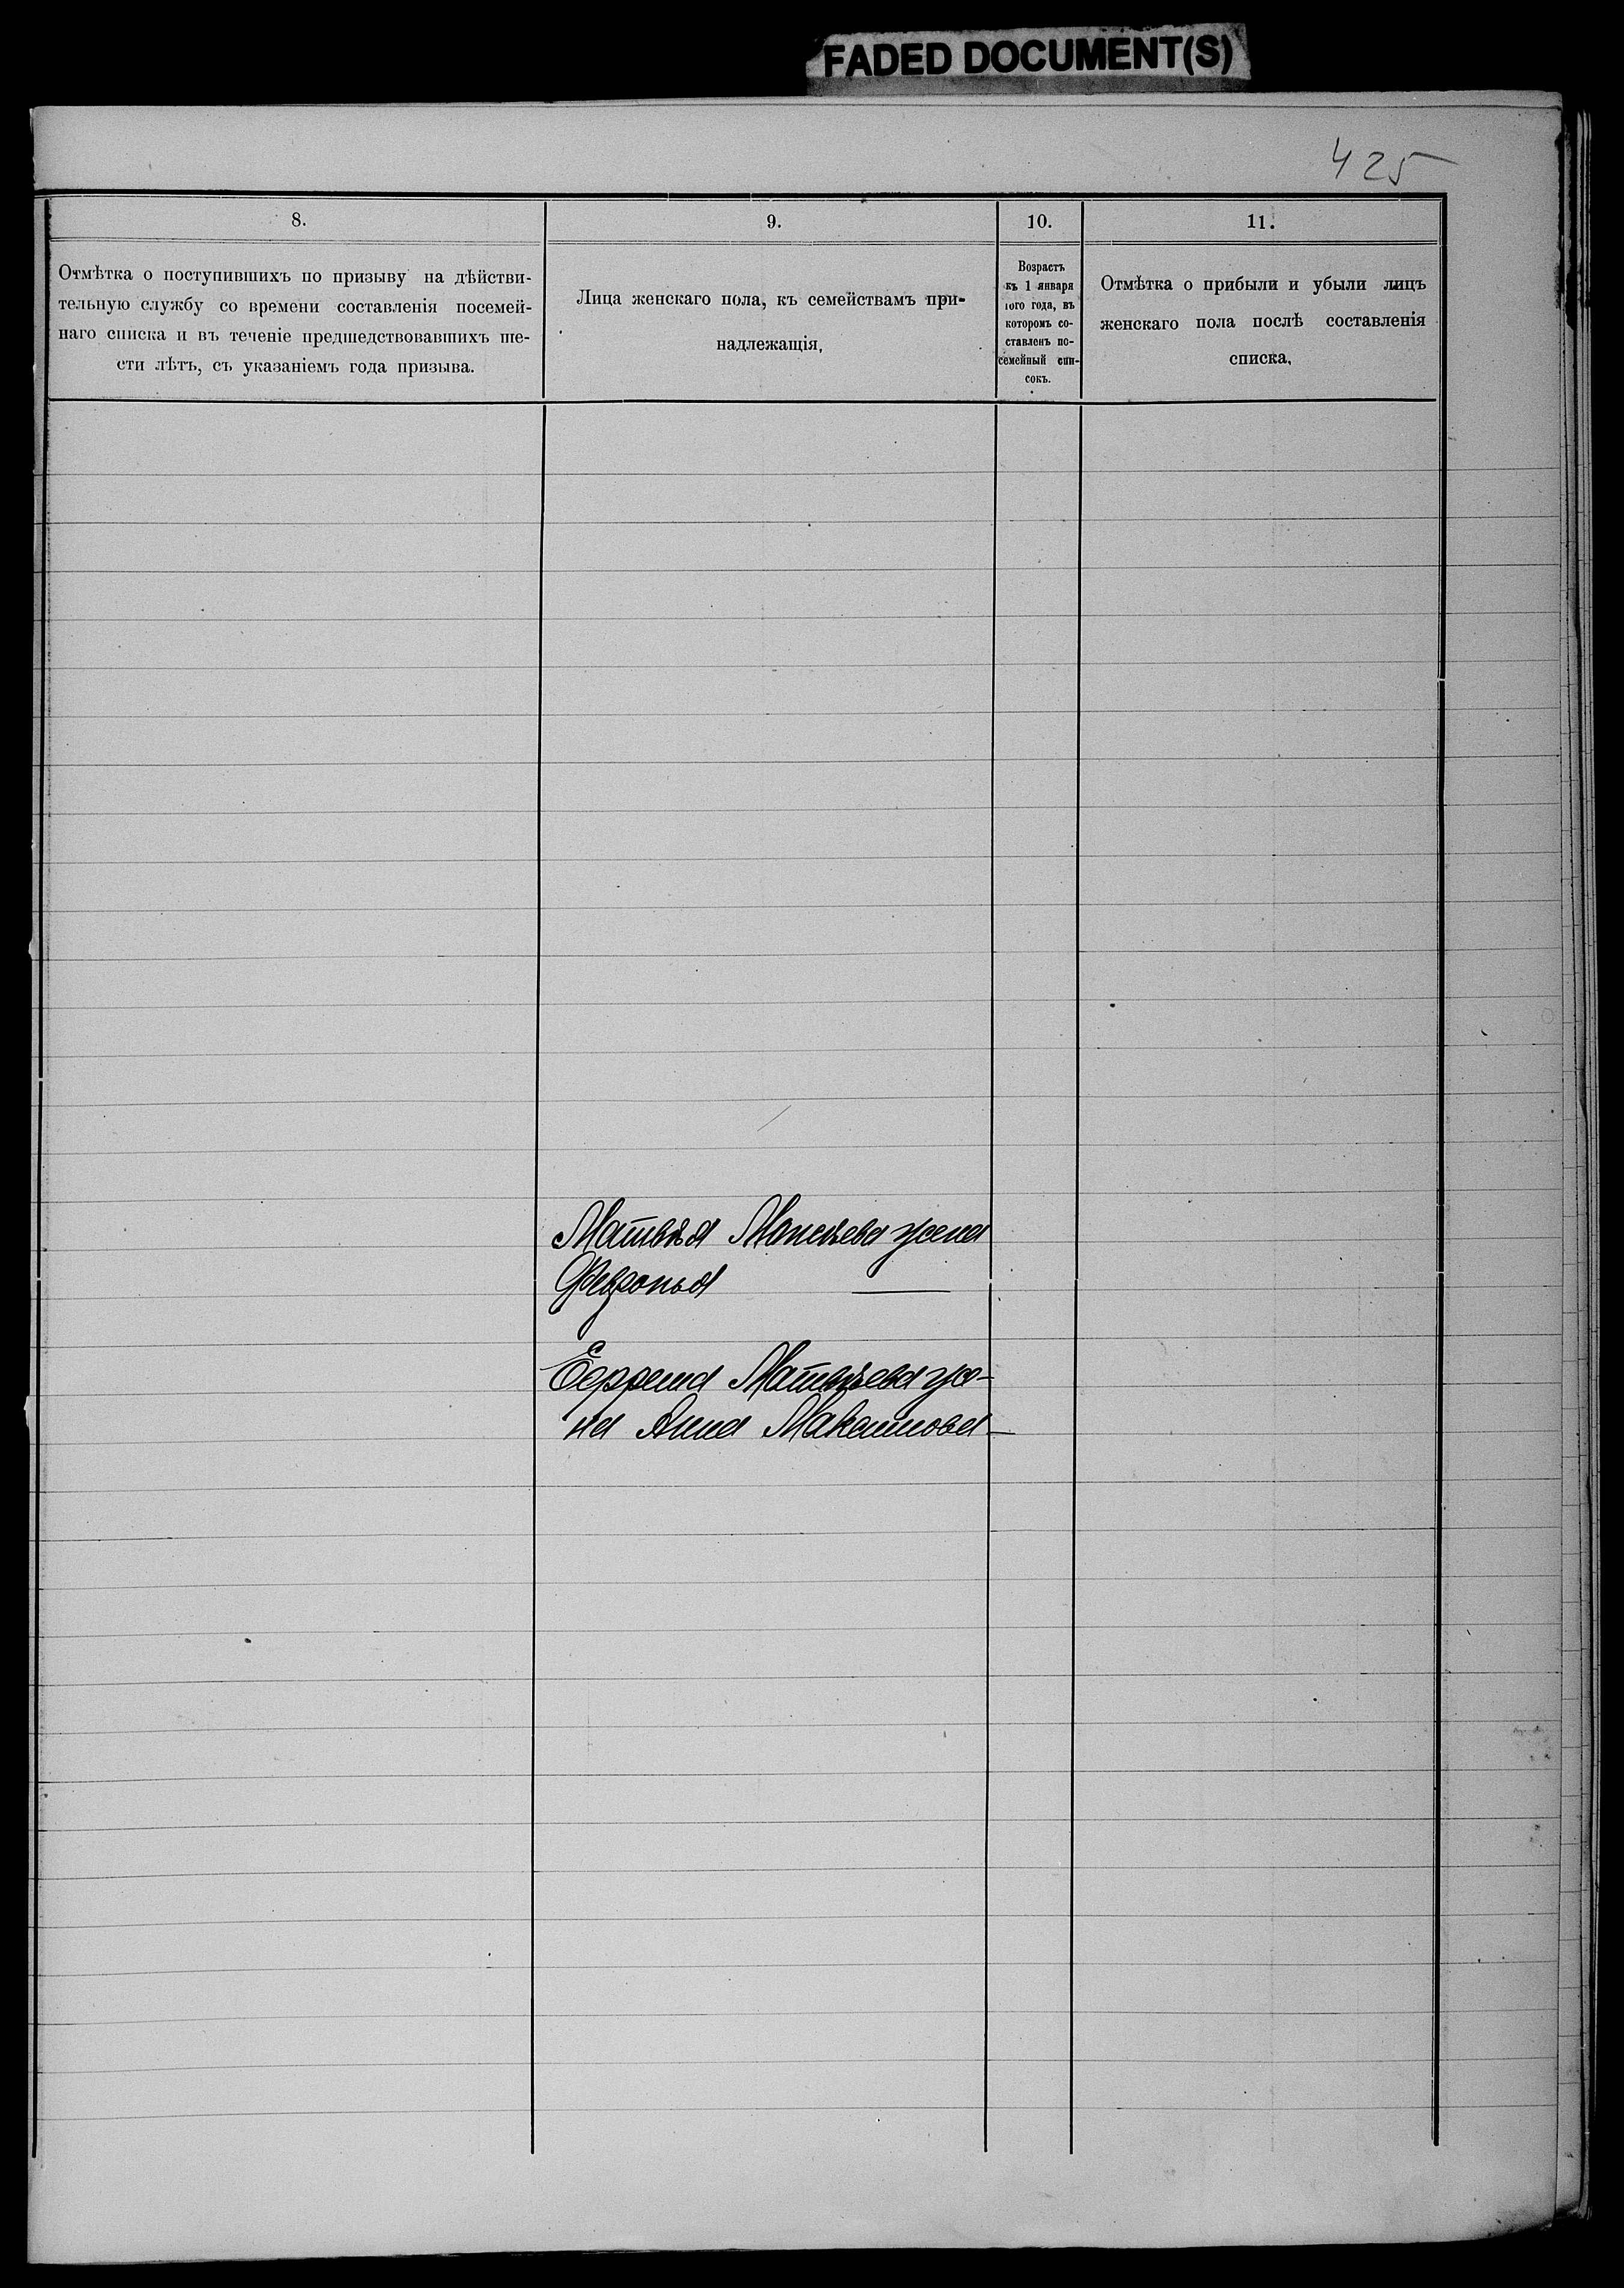 FADED DOCUMENT(S)
425
8.
9.
10.
11.
Отмѣтка о поступившихъ по призыву на дѣйстви-
тельную службу со времени составленія посемей-
наго списка и въ теченіе предшедствовавшихъ ше-
сти лѣтъ, съ указаніемъ года призыва.
Лица женскаго пола, къ семействамъ при-
надлежащія,
Возрастъ
къ 1 января
того года, въ
которомъ со-
ставленъ по-
семейный спи-
сокъ.
Отмѣтка о прибыли и убыли лицъ
женскаго пола послѣ составленія
списка,
Матвѣя Моисѣева жена
Февронья —
Матвѣева же-
на Анна Максимова —